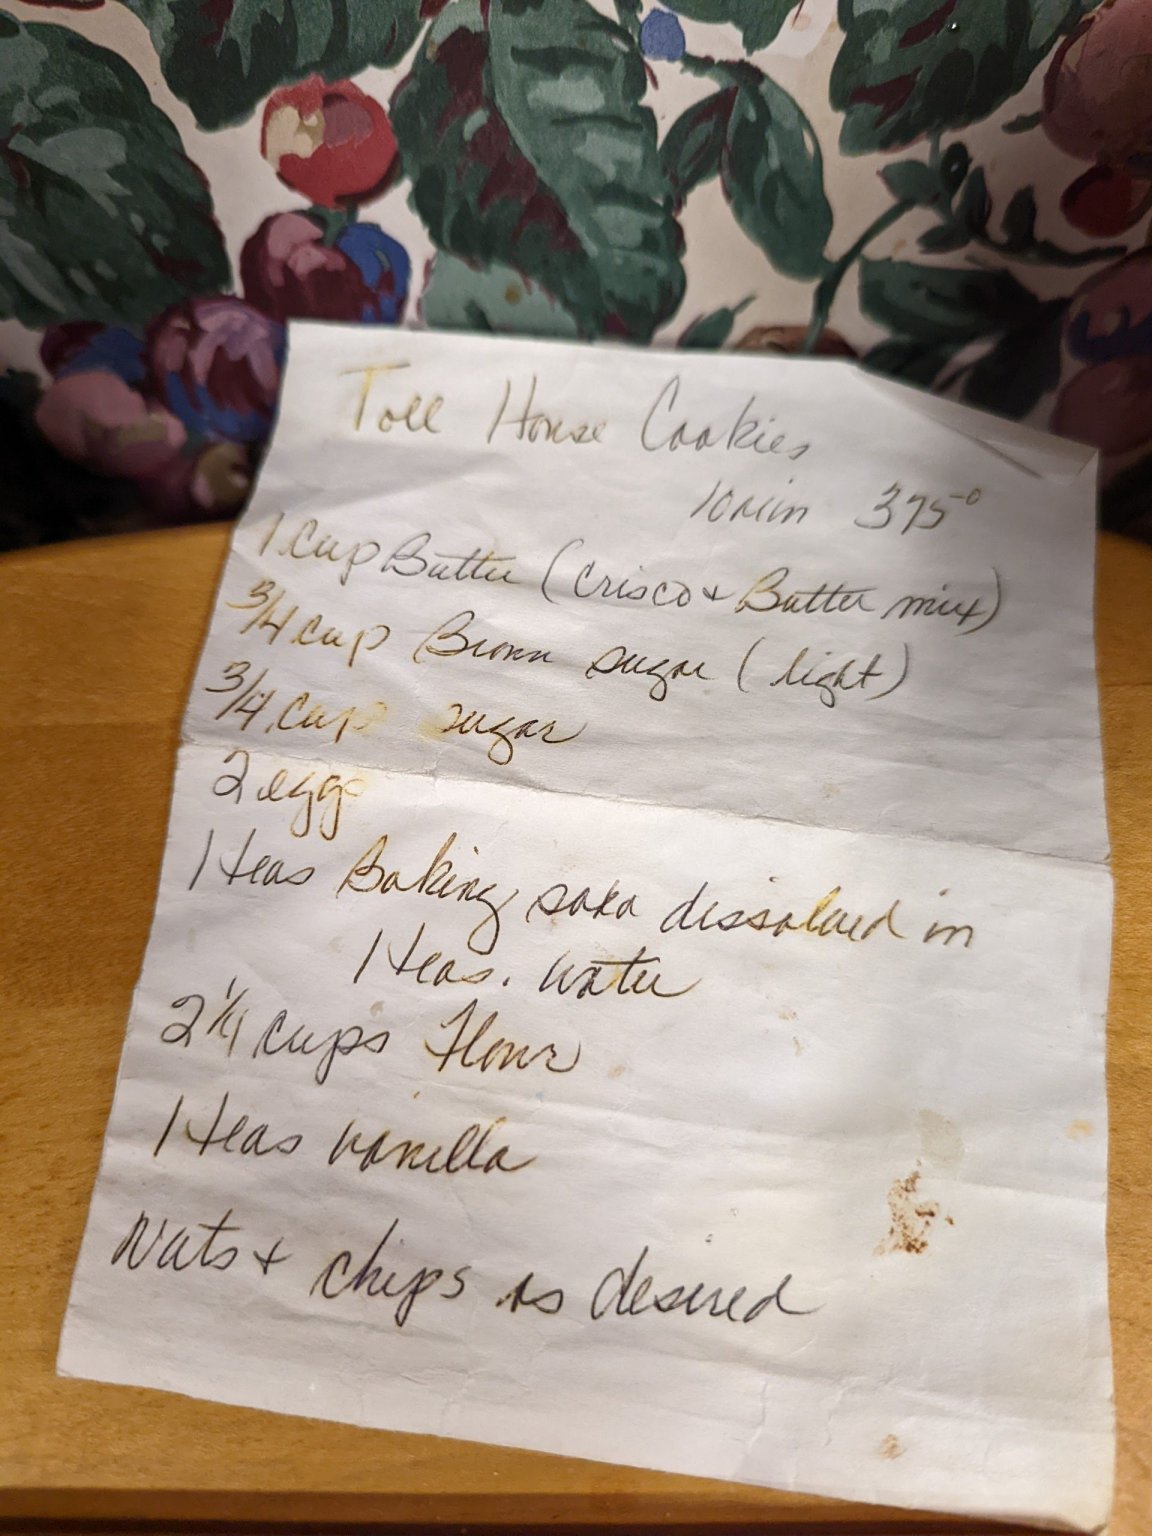 Toll House Cookies
10 min 375°
1 cup Butter (Crisco + Butter mix)
3/4 cup Brown sugar (light)
3/4 cup sugar
2 eggs
1 teas Baking soda dissolved in
1 teas. water
2 1/4 cups Flour
1 teas vanilla
Nuts + chips as desired